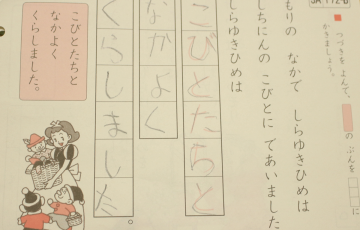 つづきを よんで、
かきましょう。
のぶんを に
もりの なかで しらゆきひめは
しちにんの こびとに であいました
しらゆきひめは
こびとたちと
なかよく
くらしました。
こびとたちと
なかよく
くらしました。